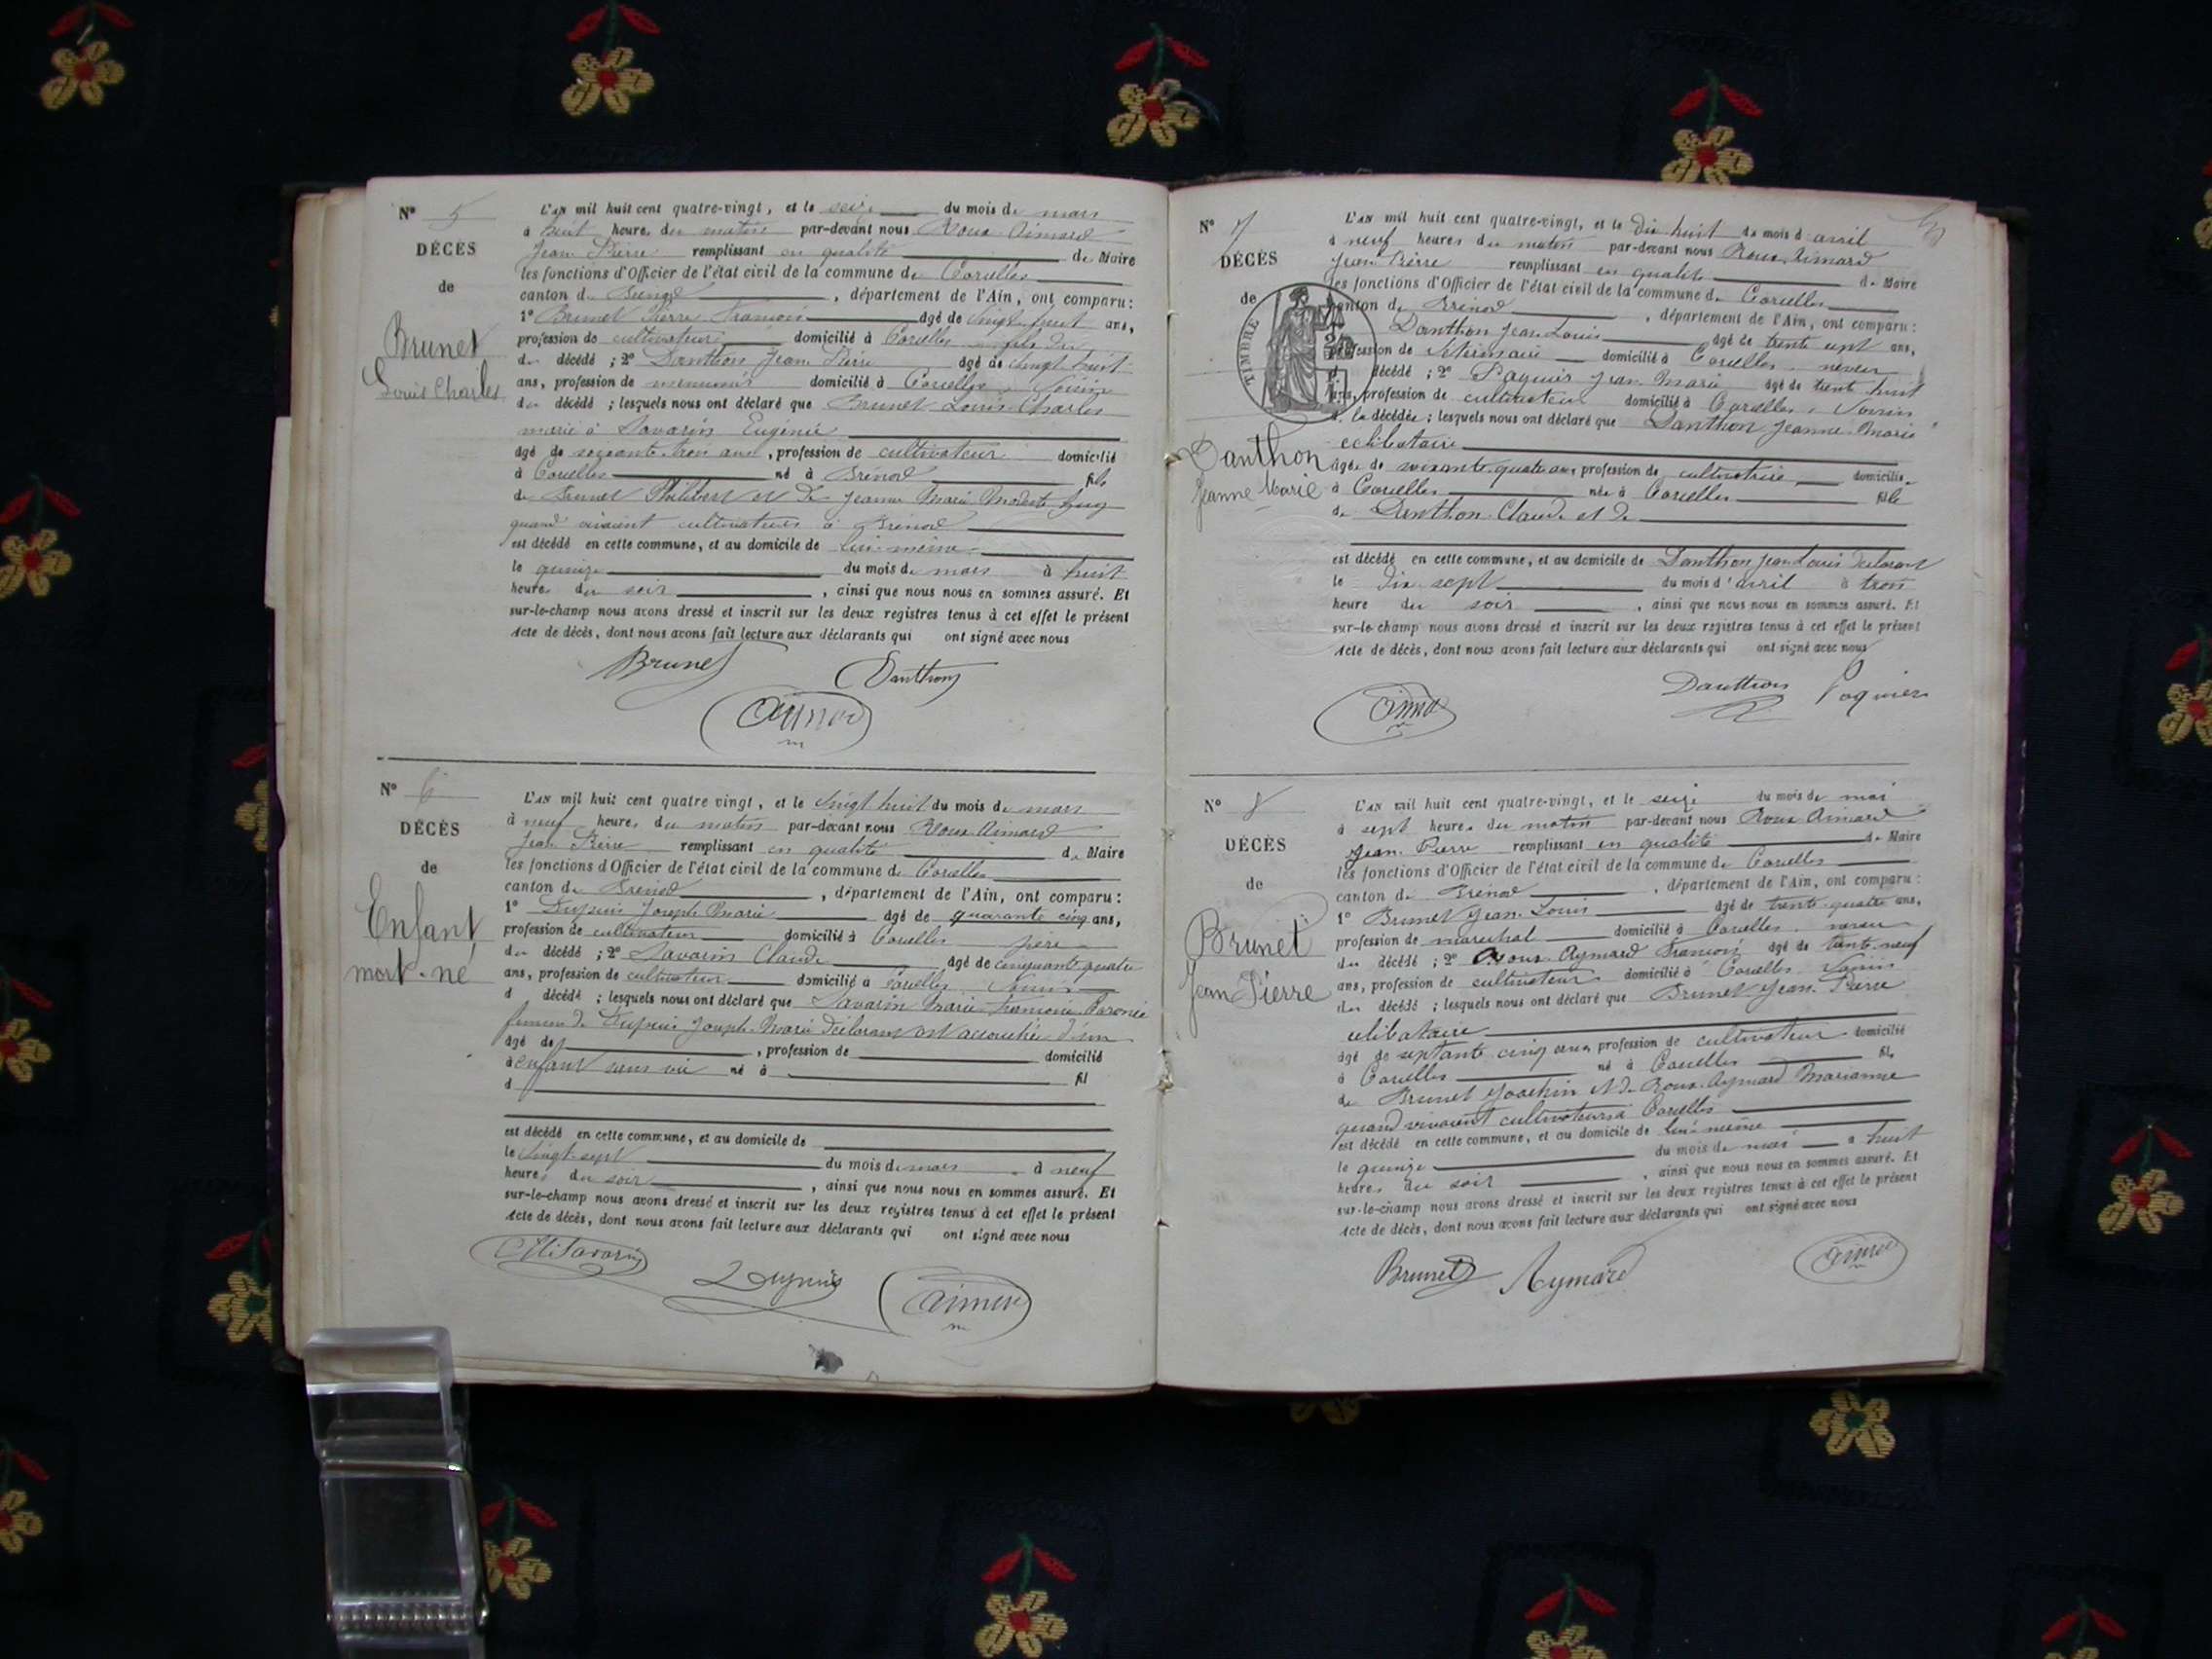 N° 5
DÉCÈS
de
Brunet
Louis Charles
L'AN mil huit cent quatre-vingt, et le seize du mois de mars
à huit heures du matin par-devant nous Roux Aimard
Jean Pierre remplissant en qualité de Maire
les fonctions d'Officier de l'état civil de la commune de Corcelles
canton de Brénod, département de l'Ain, ont comparu:
1° Brunet Pierre François âgé de vingt-huit ans,
profession de cultivateur domicilié à Corcelles fils du
du décédé; 2° Danthon Jean Pierre âgé de vingt huit
ans, profession de menuisier domicilié à Corcelles voisin
du décédé; lesquels nous ont déclaré que Brunet Louis Charles
marié à Savarin Eugénie
âgé de soixante-trois ans, profession de cultivateur domicilié
à Corcelles né à Brénod fils
de Brunet Philibert et de Jeanne Marie Modeste
quand vivaient cultivateurs à Brénod
est décédé en cette commune, et au domicile de lui-même
le quinze du mois de mars à huit
heures du soir, ainsi que nous nous en sommes assuré. Et
sur-le-champ nous avons dressé et inscrit sur les deux registres tenus à cet effet le présent
Acte de décès, dont nous avons fait lecture aux déclarants qui ont signé avec nous
Brunet Danthon
Aimard
N° 6
DÉCÈS
de
Enfant
mort-né
L'AN mil huit cent quatre vingt, et le vingt huit du mois de mars
à neuf heures du matin par-devant nous Roux Aimard
Jean Pierre remplissant en qualité de Maire
les fonctions d'Officier de l'état civil de la commune de Corcelles
canton de Brénod, département de l'Ain, ont comparu:
1° Dupuis Joseph Marie âgé de quarante cinq ans,
profession de cultivateur domicilié à Corcelles père
du décédé; 2° Savarin Claude âgé de cinquante quatre
ans, profession de cultivateur domicilié à Corcelles voisin
d décédé; lesquels nous ont déclaré que Savarin Marie Françoise
femme de Dupuis Joseph Marie déclarant est accouchée d'un
âgé de, profession de domicilié
à enfant sans vie né à fil
d
est décédé en cette commune, et au domicile de
le vingt-sept du mois de mars à neuf
heures du soir, ainsi que nous nous en sommes assuré. Et
sur-le-champ nous avons dressé et inscrit sur les deux registres tenus à cet effet le présent
Acte de décès, dont nous avons fait lecture aux déclarants qui ont signé avec nous
Savarin Dupuis Aimard
N° 7
DÉCÈS
de
TIMBRE
Danthon
Jeanne Marie
L'AN mil huit cent quatre-vingt, et le dix huit du mois d'avril
à neuf heures du matin par-devant nous Roux Aimard
Jean Pierre remplissant en qualité de Maire
les fonctions d'Officier de l'état civil de la commune de Corcelles
canton de Brénod, département de l'Ain, ont comparu:
Danthon Jean Louis âgé de trente sept ans,
profession de domicilié à Corcelles neveu
d décédé; 2° Paquier Jean Marie âgé de trente huit
ans, profession de cultivateur domicilié à Corcelles voisin
de la décédée; lesquels nous ont déclaré que Danthon Jeanne Marie
célibataire
âgée de soixante-quatre ans, profession de cultivatrice domiciliée
à Corcelles née à Corcelles fille
de Danthon Claude et de
est décédé en cette commune, et au domicile de Danthon Jean Louis déclarant
le dix-sept du mois d'avril à trois
heure du soir, ainsi que nous nous en sommes assuré. Et
sur-le-champ nous avons dressé et inscrit sur les deux registres tenus à cet effet le présent
Acte de décès, dont nous avons fait lecture aux déclarants qui ont signé avec nous
Aimard Danthon Paquier
N° 8
DÉCÈS
de
Brunet
Jean Pierre
L'AN mil huit cent quatre-vingt, et le seize du mois de mai
à sept heures du matin par-devant nous Roux Aimard
Jean Pierre remplissant en qualité de Maire
les fonctions d'Officier de l'état civil de la commune de Corcelles
canton de Brénod, département de l'Ain, ont comparu:
1° Brunet Jean Louis âgé de trente-quatre ans,
profession de maréchal domicilié à Corcelles neveu
du décédé; 2° Roux Aymard François âgé de trente-neuf
ans, profession de cultivateur domicilié à Corcelles voisin
du décédé; lesquels nous ont déclaré que Brunet Jean Pierre
célibataire
âgé de septante cinq ans, profession de cultivateur domicilié
à Corcelles né à Corcelles fils
de Brunet Joachin et de Roux Aymard Marianne
quand vivaient cultivateurs à Corcelles
est décédé en cette commune, et au domicile de lui-même
le quinze du mois de mai à huit
heures du soir, ainsi que nous nous en sommes assuré. Et
sur-le-champ nous avons dressé et inscrit sur les deux registres tenus à cet effet le présent
Acte de décès, dont nous avons fait lecture aux déclarants qui ont signé avec nous
Brunet Aymard Aimard